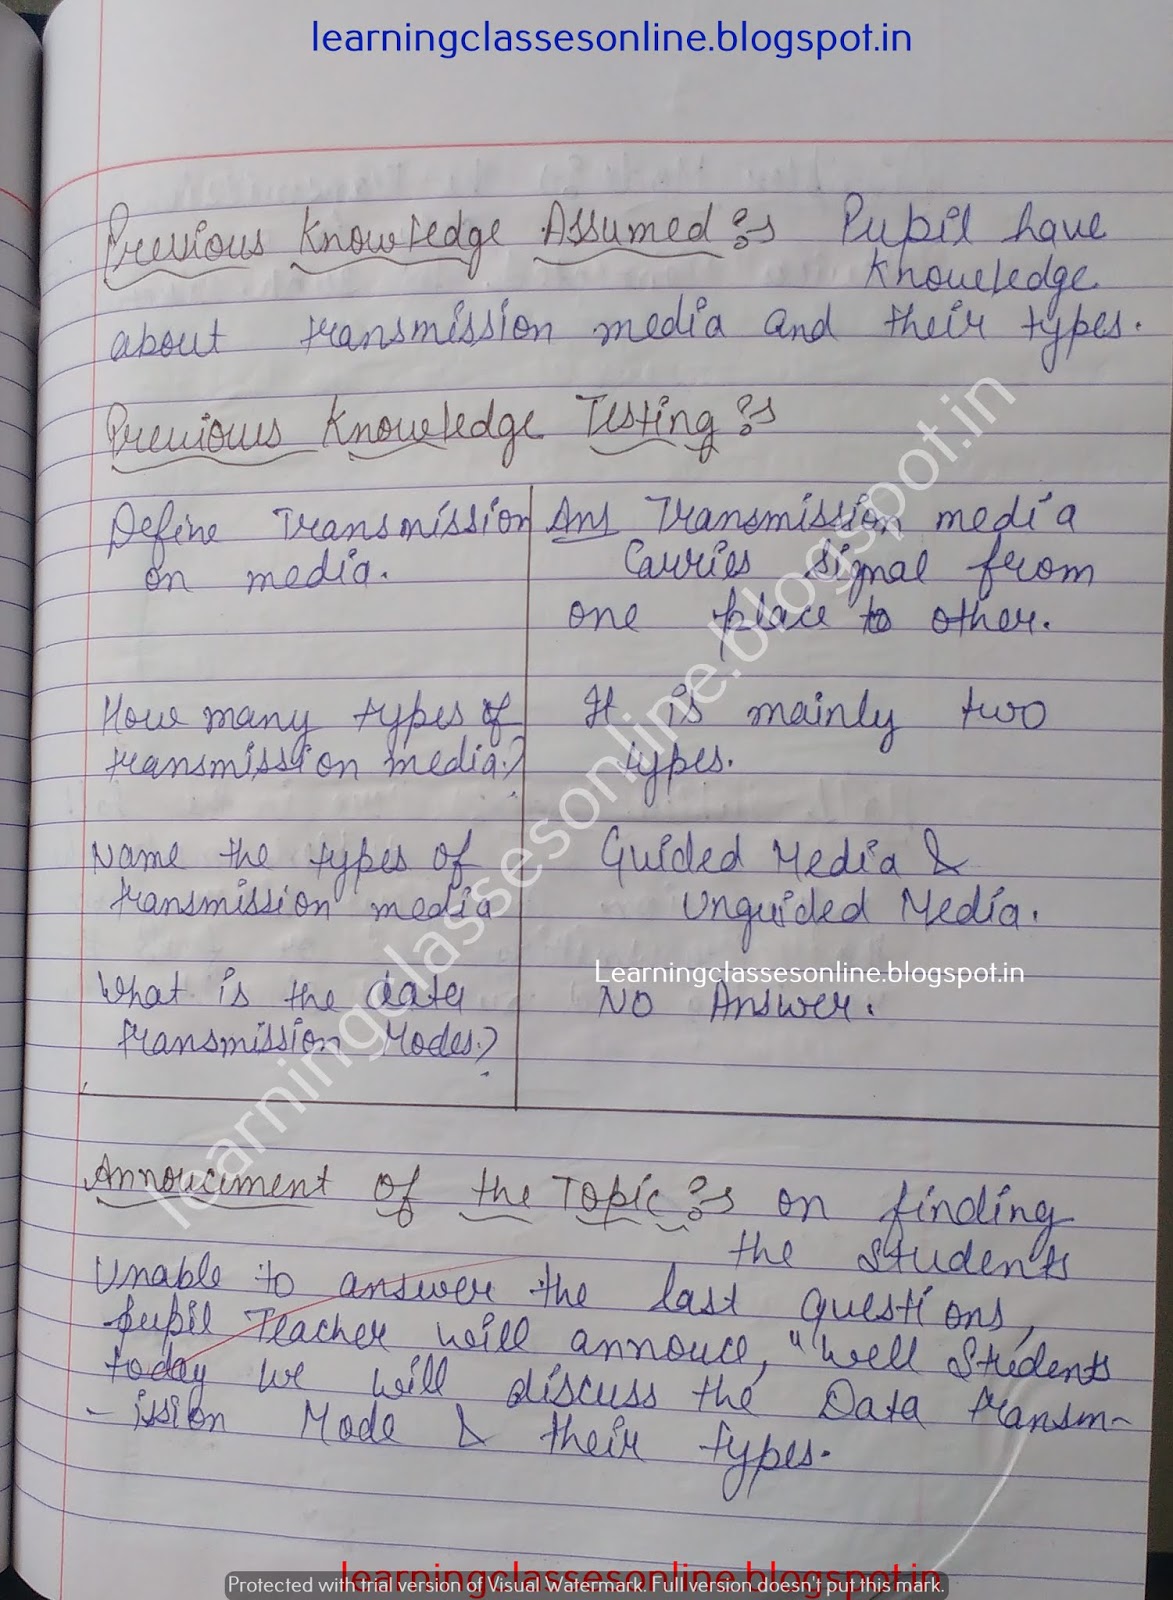 learningclassesonline.blogspot.in
Previous Knowledge Assumed :- Pupil have
Knowledge
about transmission media and their types.
Previous Knowledge Testing :-
Define Transmission
on media.
Ans Transmission media
Carries signal from
one place to other.
How many types of
transmission media?
It is mainly two
types.
Name the types of
transmission media
Guided Media &
Unguided Media.
What is the data
transmission Modes?
Learningclassesonline.blogspot.in
No Answer.
Annoucement of the Topic :- on finding
the students
Unable to answer the last questions,
pupil Teacher will annouce, "Well Students
today we will discuss the Data transm-
-ission Mode & their types.
learningclassesonline.blogspot.in
learningclassesonline.blogspot.in
Protected with trial version of Visual Watermark. Full version doesn't put this mark.